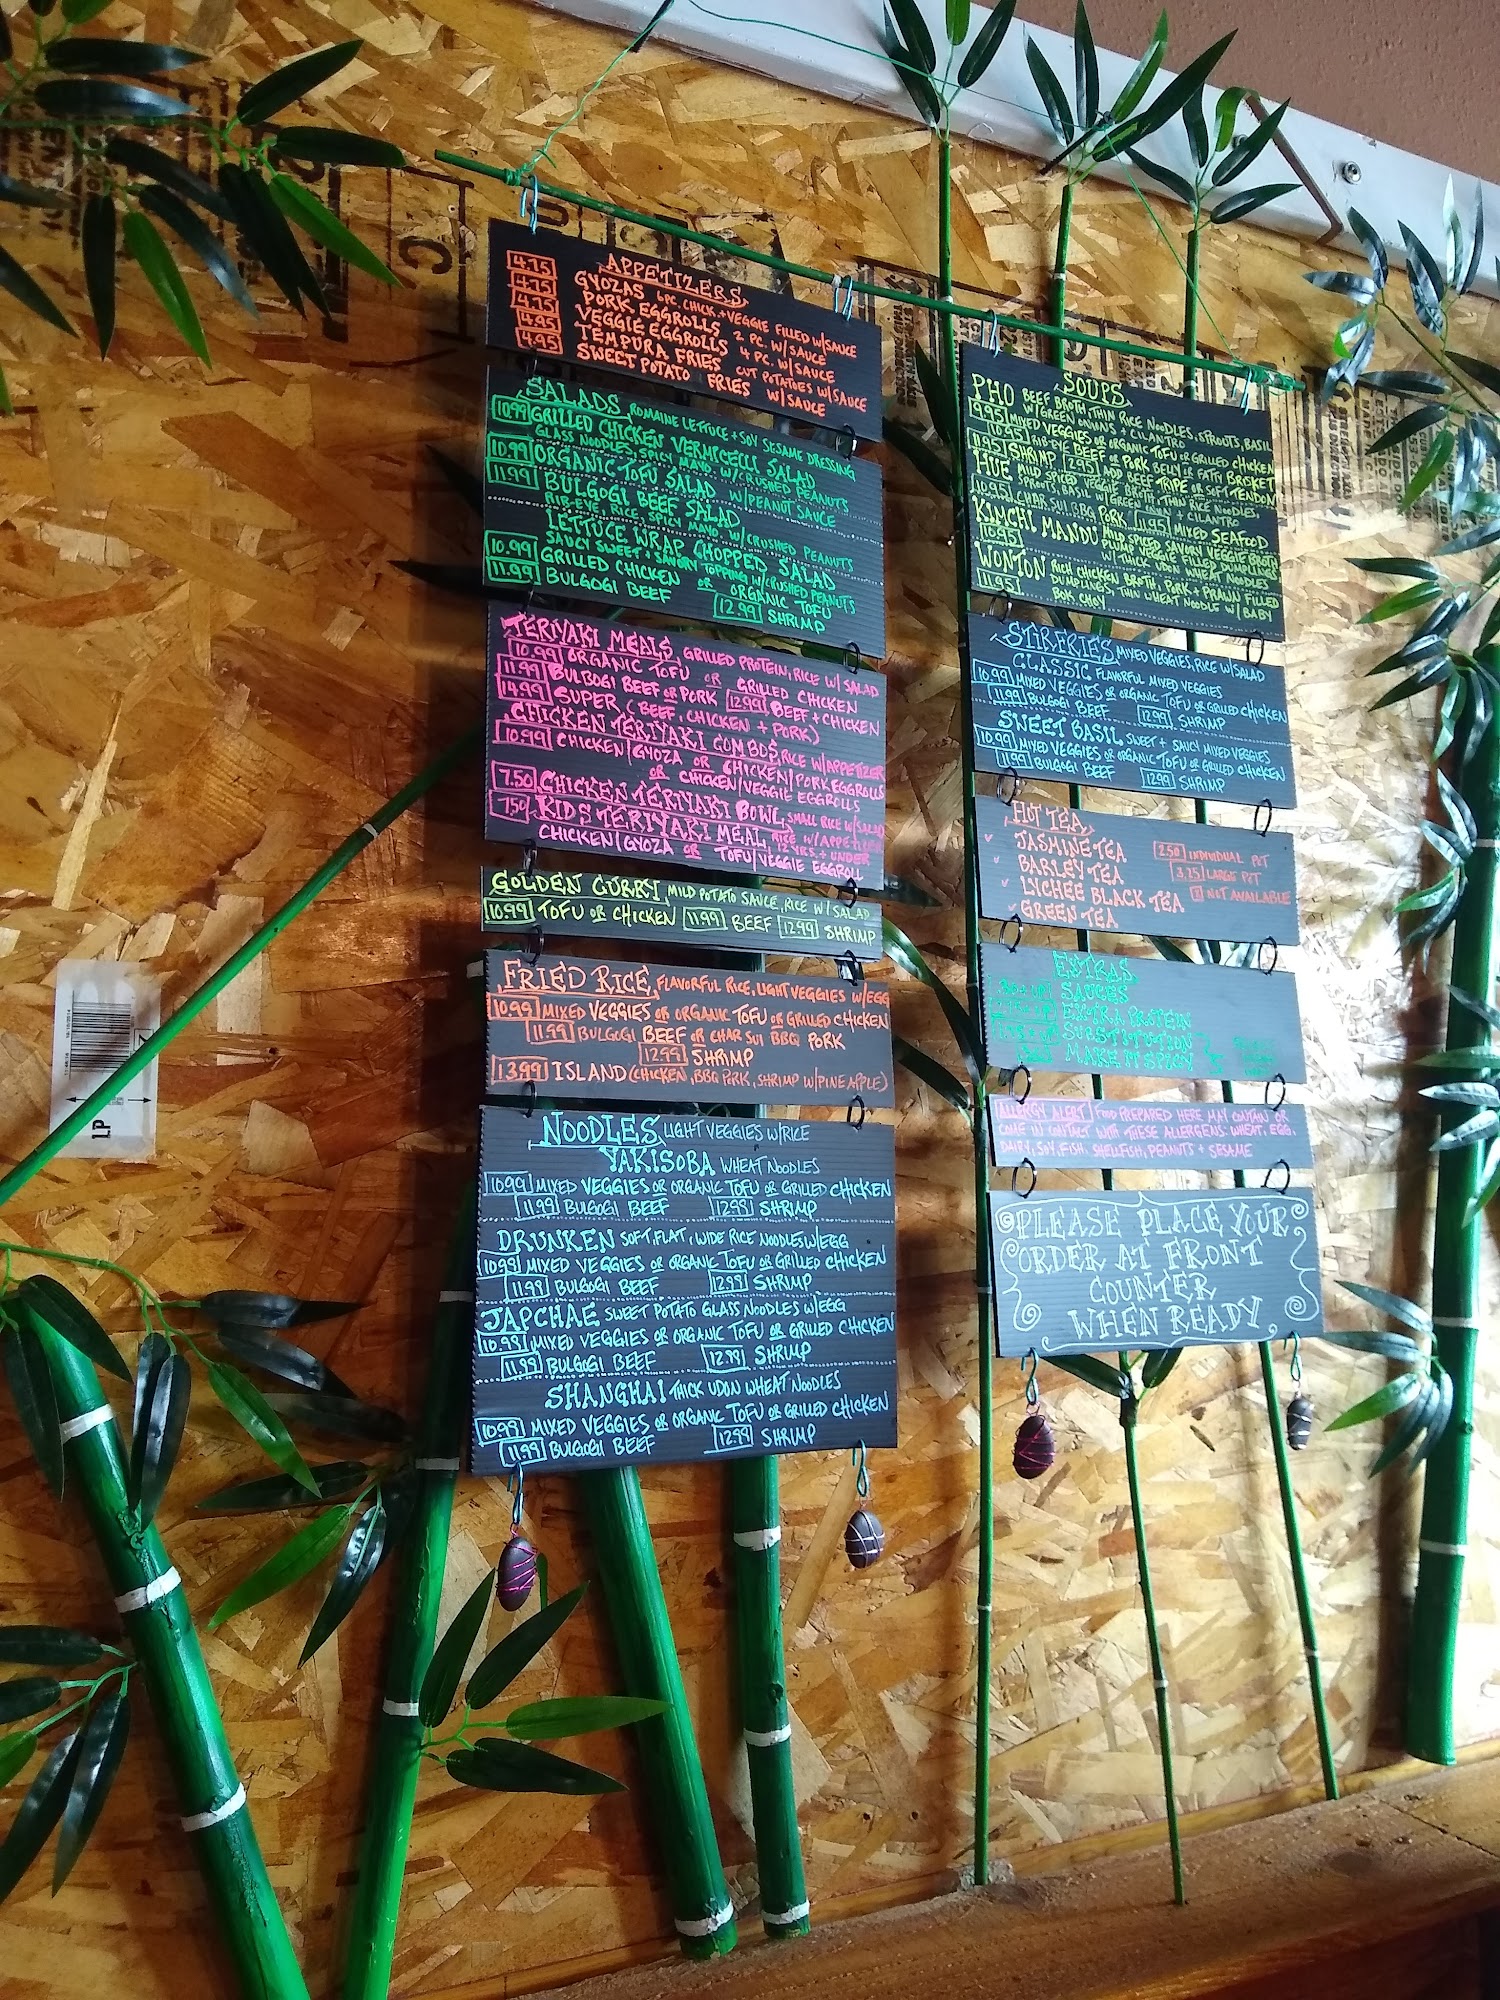 APPETIZERS
4.75 GYOZAS 6PC. CHICK.+VEGGIE FILLED W/SAUCE
4.75 PORK EGGROLLS 2 PC. W/SAUCE
4.75 VEGGIE EGGROLLS 4 PC. W/SAUCE
4.95 TEMPURA FRIES CUT POTATOES W/SAUCE
4.95 SWEET POTATO FRIES W/SAUCE
SALADS, ROMAINE LETTUCE + SOY SESAME DRESSING
10.99 GRILLED CHICKEN VERMICELLI SALAD
GLASS NOODLES, SPICY MAYO, W/CRUSHED PEANUTS
10.99 ORGANIC TOFU SALAD W/PEANUT SAUCE
11.99 BULGOGI BEEF SALAD,
RIB-EYE, RICE, SPICY MAYO, W/CRUSHED PEANUTS
LETTUCE WRAP CHOPPED SALAD
SAUCY SWEET + TOPPING W/CRUSHED PEANUTS
10.99 GRILLED CHICKEN OR ORGANIC TOFU
11.99 BULGOGI BEEF 12.99 SHRIMP
TERIYAKI MEALS, GRILLED PROTEIN, RICE W/SALAD
10.99 ORGANIC TOFU OR GRILLED CHICKEN
11.99 BULBOGI BEEF OR PORK 12.99 BEEF + CHICKEN
14.99 SUPER (BEEF, CHICKEN + PORK)
CHICKEN TERIYAKI COMBOS, RICE W/APPETIZER
10.99 CHICKEN/GYOZA OR CHICKEN/PORK EGGROLLS
OR CHICKEN/VEGGIE EGGROLLS
7.50 CHICKEN TERIYAKI BOWL, SMALL RICE W/SALAD
7.50 KIDS TERIYAKI MEAL, RICE W/APPETIZER
12 YRS. + UNDER
CHICKEN/GYOZA OR TOFU/VEGGIE EGGROLL
GOLDEN CURRY, MILD POTATO SAUCE, RICE W/SALAD
10.99 TOFU OR CHICKEN 11.99 BEEF 12.99 SHRIMP
FRIED RICE, FLAVORFUL RICE, LIGHT VEGGIES W/EGG
10.99 MIXED VEGGIES OR ORGANIC TOFU OR GRILLED CHICKEN
11.99 BULGOGI BEEF OR CHAR SUI BBQ PORK
12.99 SHRIMP
13.99 ISLAND (CHICKEN, BBQ PORK, SHRIMP W/PINEAPPLE)
NOODLES, LIGHT VEGGIES W/RICE
YAKISOBA WHEAT NOODLES
10.99 MIXED VEGGIES OR ORGANIC TOFU OR GRILLED CHICKEN
11.99 BULGOGI BEEF 12.99 SHRIMP
DRUNKEN SOFT, FLAT, WIDE RICE NOODLES W/EGG
10.99 MIXED VEGGIES OR ORGANIC TOFU OR GRILLED CHICKEN
11.99 BULGOGI BEEF 12.99 SHRIMP
JAPCHAE SWEET POTATO GLASS NOODLES W/EGG
10.99 MIXED VEGGIES OR ORGANIC TOFU OR GRILLED CHICKEN
11.99 BULGOGI BEEF 12.99 SHRIMP
SHANGHAI THICK UDON WHEAT NOODLES
10.99 MIXED VEGGIES OR ORGANIC TOFU OR GRILLED CHICKEN
11.99 BULGOGI BEEF 12.99 SHRIMP
SOUPS
PHO BEEF BROTH, THIN RICE NOODLES, SPROUTS, BASIL
W/GREEN ONIONS + CILANTRO
9.95 MIXED VEGGIES OR ORGANIC TOFU OR GRILLED CHICKEN
10.95 RIB-EYE BEEF OR PORK BELLY OR FATTY BRISKET
11.95 SHRIMP 2.95 ADD BEEF TRIPE OR SOFT TENDON
HUE MILD SPICED VEGGIE BROTH, THIN RICE NOODLES,
SPROUTS, BASIL W/GREEN ONION + CILANTRO
10.95 CHAR SUI BBQ PORK 11.95 MIXED SEAFOOD
KIMCHI MANDU MILD SPICED SAVORY VEGGIE BROTH
10.95 VEGGIE FILLED DUMPLINGS
W/THICK UDON WHEAT NOODLES
WONTON RICH CHICKEN BROTH, PORK + PRAWN FILLED
11.95 DUMPLINGS, THIN WHEAT NOODLE W/BABY
BOK CHOY
STIRFRIES MIXED VEGGIES, RICE W/SALAD
CLASSIC FLAVORFUL MIXED VEGGIES
10.99 MIXED VEGGIES OR ORGANIC TOFU OR GRILLED CHICKEN
11.99 BULGOGI BEEF 12.99 SHRIMP
SWEET BASIL SWEET + SAUCY MIXED VEGGIES
10.99 MIXED VEGGIES OR ORGANIC TOFU OR GRILLED CHICKEN
11.99 BULGOGI BEEF 12.99 SHRIMP
HOT TEA
JASMINE TEA 2.50 INDIVIDUAL POT
BARLEY TEA 3.25 LARGE POT
LYCHEE BLACK TEA NOT AVAILABLE
GREEN TEA
EXTRAS
SAUCES
EXTRA PROTEIN
SUBSTITUTION
MAKE IT SPICY
ALLERGY ALERT FOOD PREPARED HERE MAY CONTAIN OR
COME IN CONTACT WITH THESE ALLERGENS: WHEAT, EGG,
DAIRY, SOY, FISH, SHELLFISH, PEANUTS + SESAME
PLEASE PLACE YOUR
ORDER AT FRONT
COUNTER
WHEN READY
LP